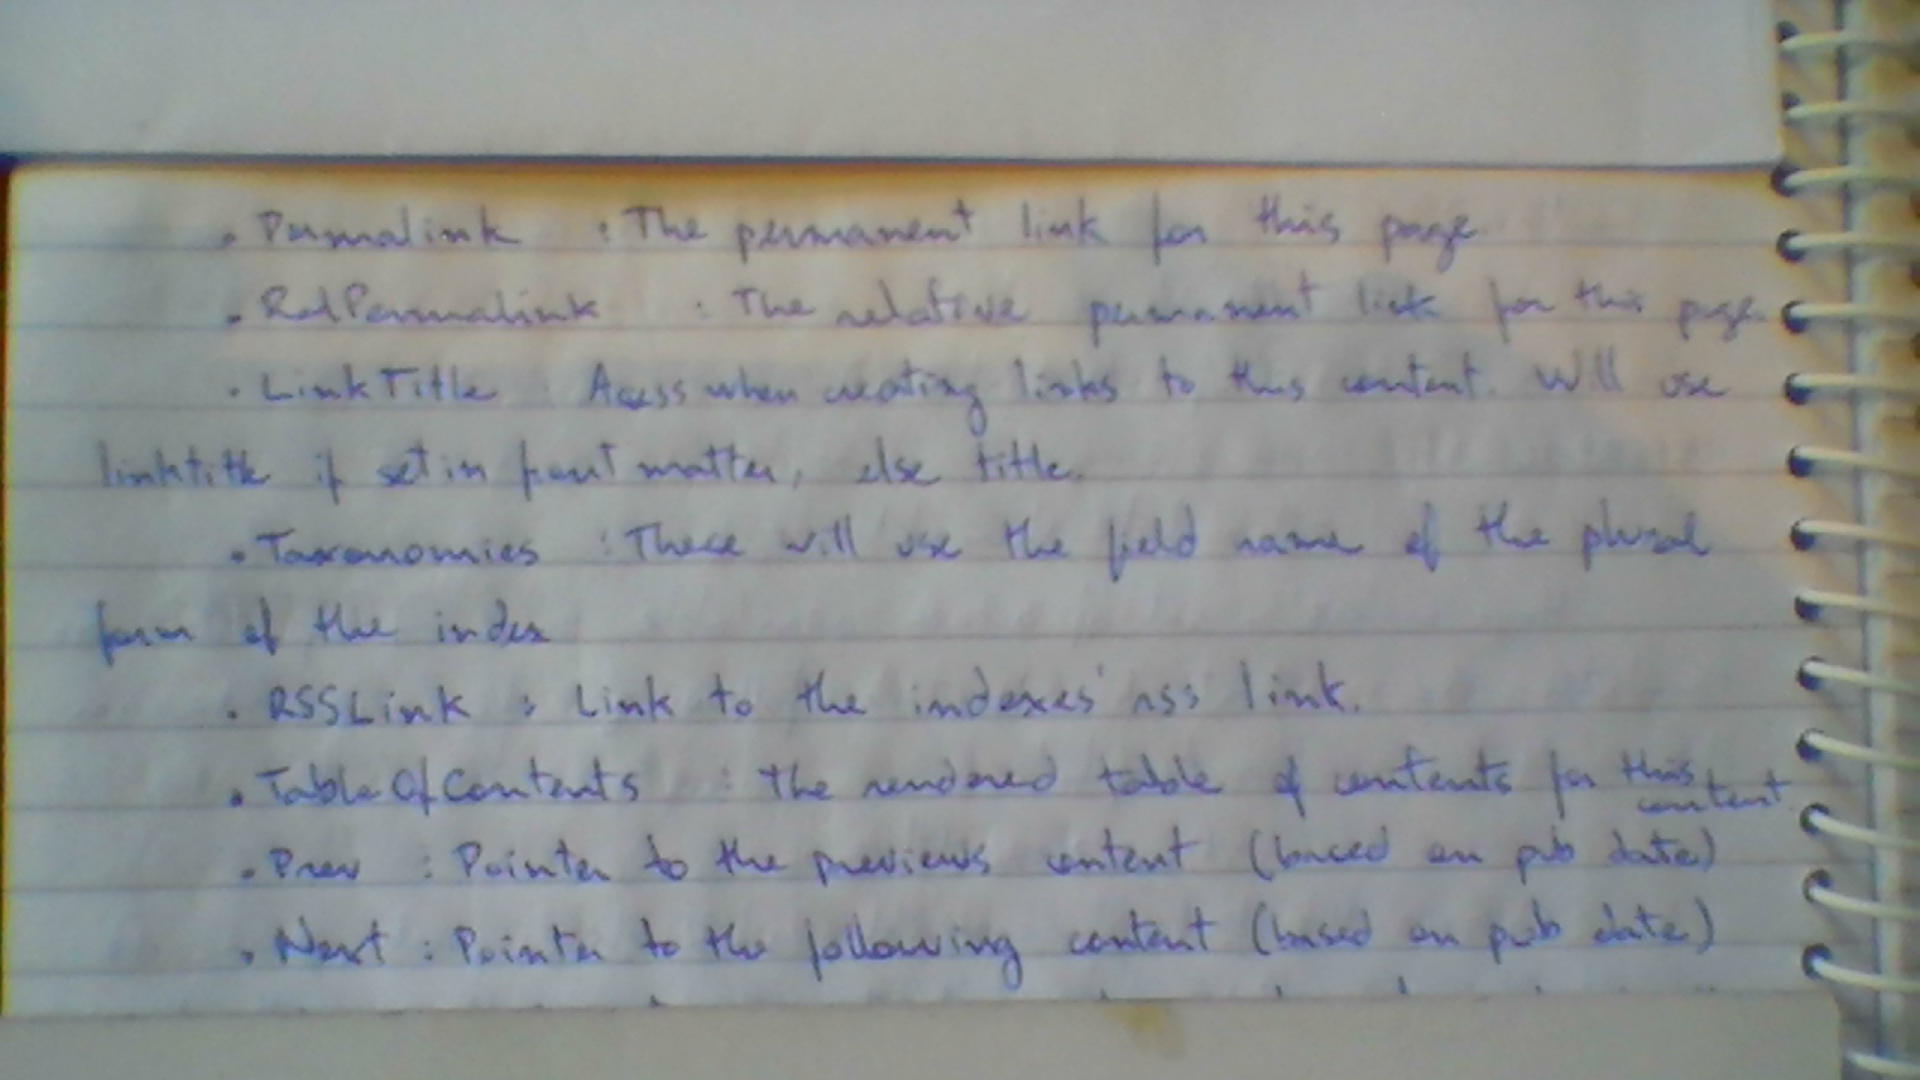 . Permalink : The permanent link for this page
. RelPermalink : The relative permanent link for this page.
. LinkTitle : Acess when creating links to this content. Will use
linktitle if set in front matter, else title.
. Taxonomies : These will use the field name of the plural
form of the index
. RSSLink : Link to the indexes' rss link.
. TableOfContents : The rendered table of contents for this content.
. Prev : Pointer to the previous content (based on pub date)
. Next : Pointer to the following content (based on pub date)